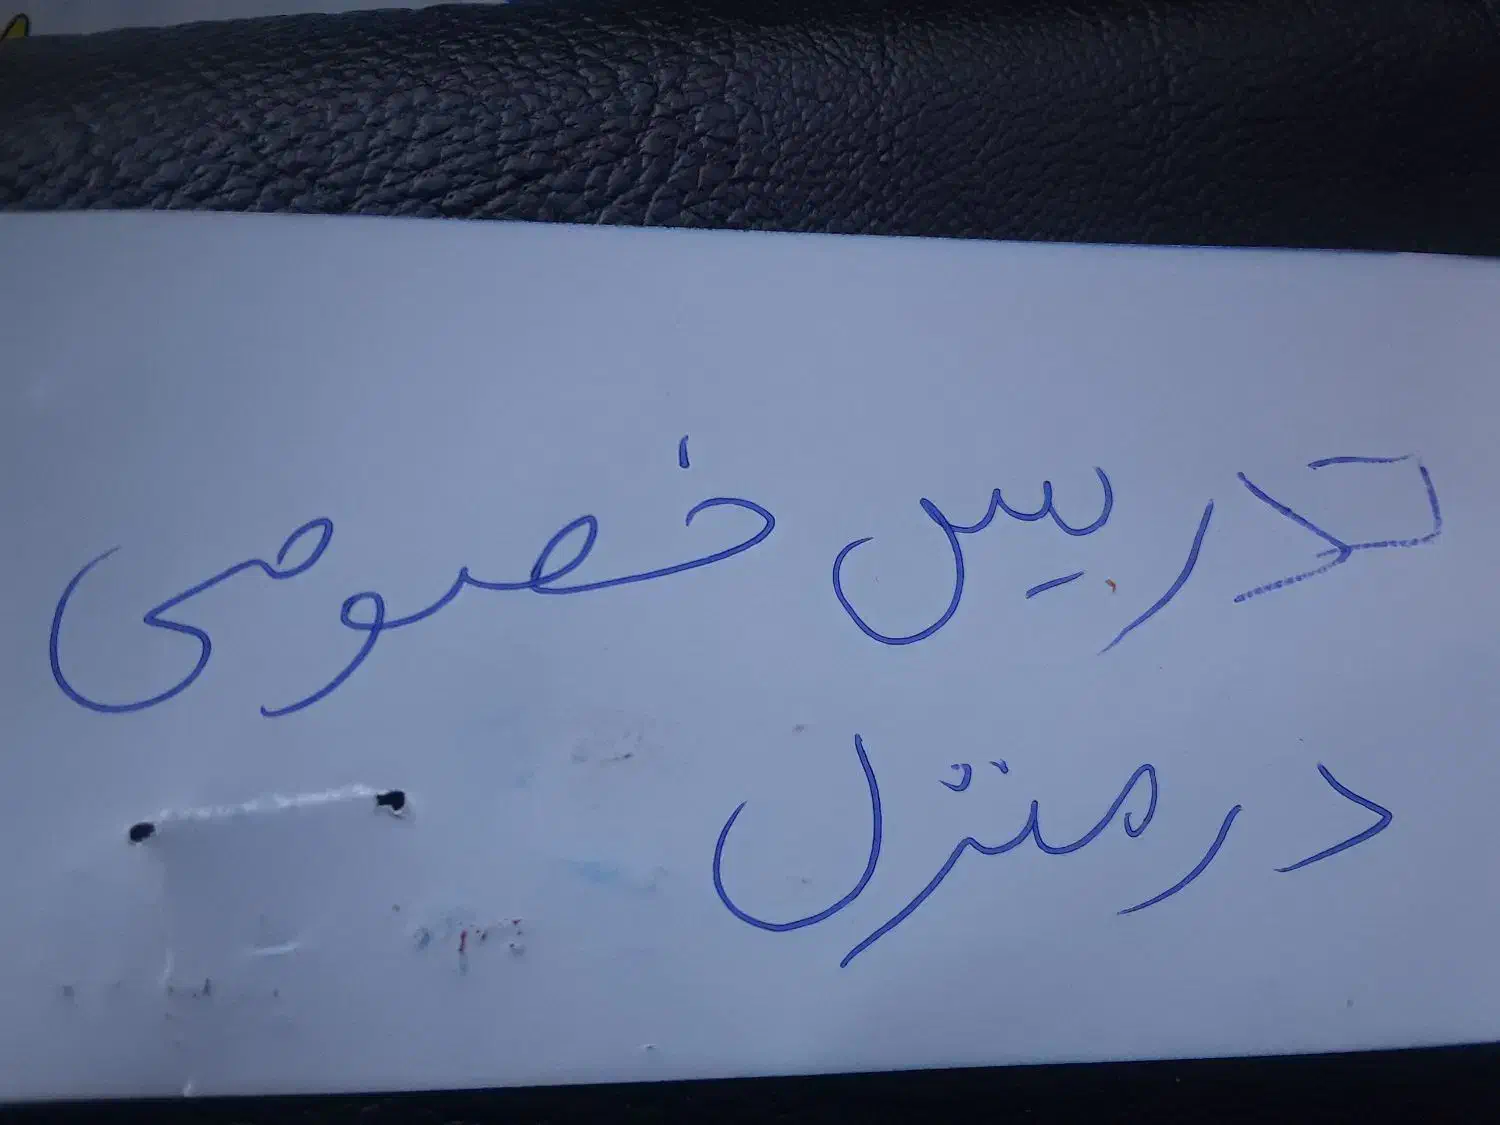 تدریس خصوصی
در منزل